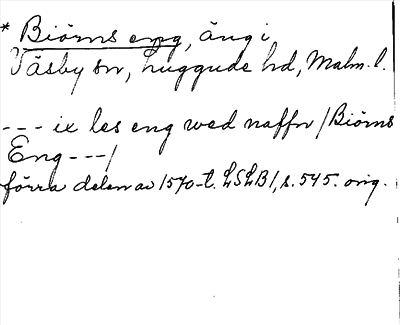 * Biörns eng, äng i
Väsby sn, Luggude hd, Malm. l.
--- ix les eng wed naffn /Biörns
Eng ---/
förra delen av 1570-t. LSLB 1, s. 545. orig.